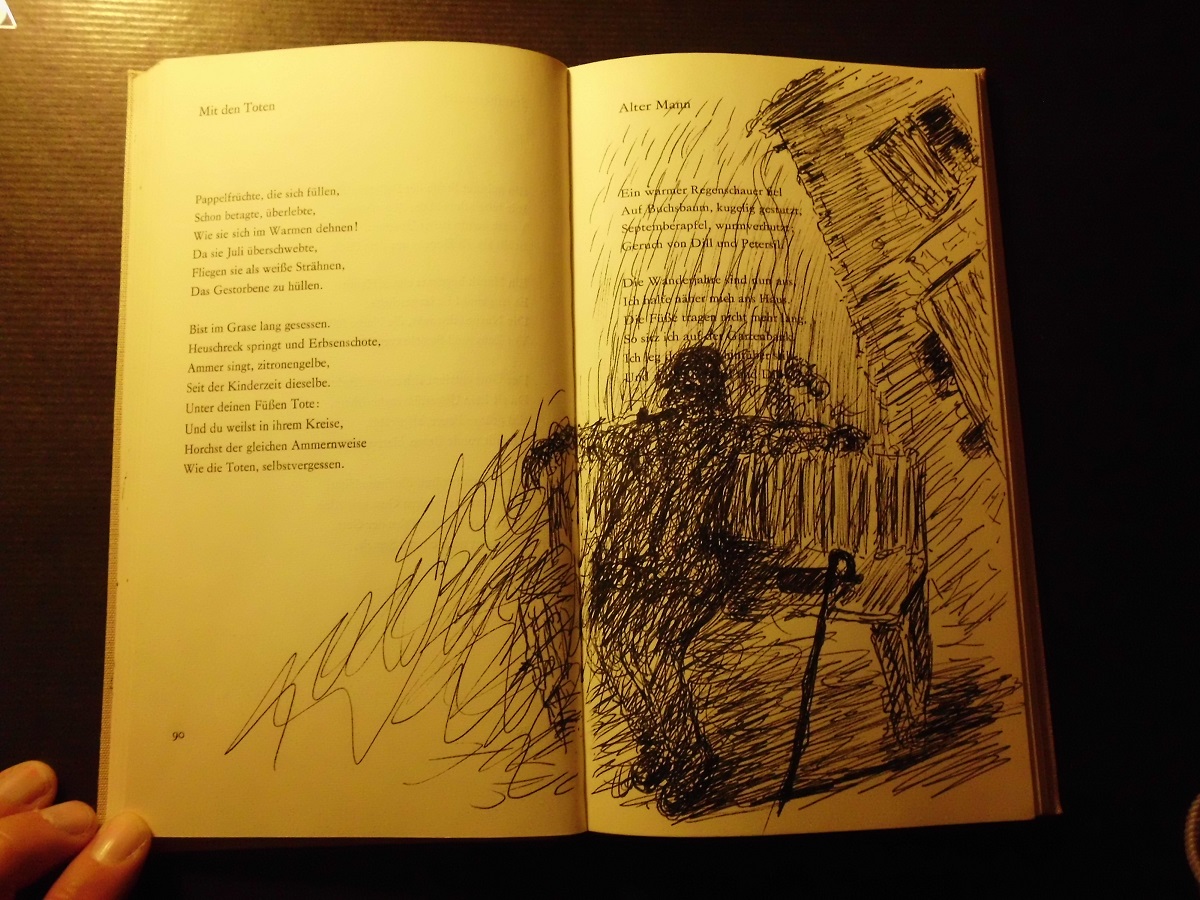 Mit den Toten
Pappelfrüchte, die sich füllen,
Schon betagte, überlebte,
Wie sie sich im Warmen dehnen!
Da sie Juli überschwebte,
Fliegen sie als weiße Strähnen,
Das Gestorbene zu hüllen.
Bist im Grase lang gesessen.
Heuschreck springt und Erbsenschote,
Ammer singt, zitronengelbe,
Seit der Kinderzeit dieselbe.
Unter deinen Füßen Tote:
Und du weilst in ihrem Kreise,
Horchst der gleichen Ammernweise
Wie die Toten, selbstvergessen.
90
Alter Mann
Ein warmer Regenschauer fiel
Auf Buchsbaum, kugelig gestutzt,
Septemberapfel, wurmverhutzt,
Geruch von Dill und Petersil.
Die Wanderjahre sind nun aus,
Ich halte näher mich ans Haus.
Die Füße tragen nicht mehr lang.
So sitz ich auf der Gartenbank,
Ich leg
Und